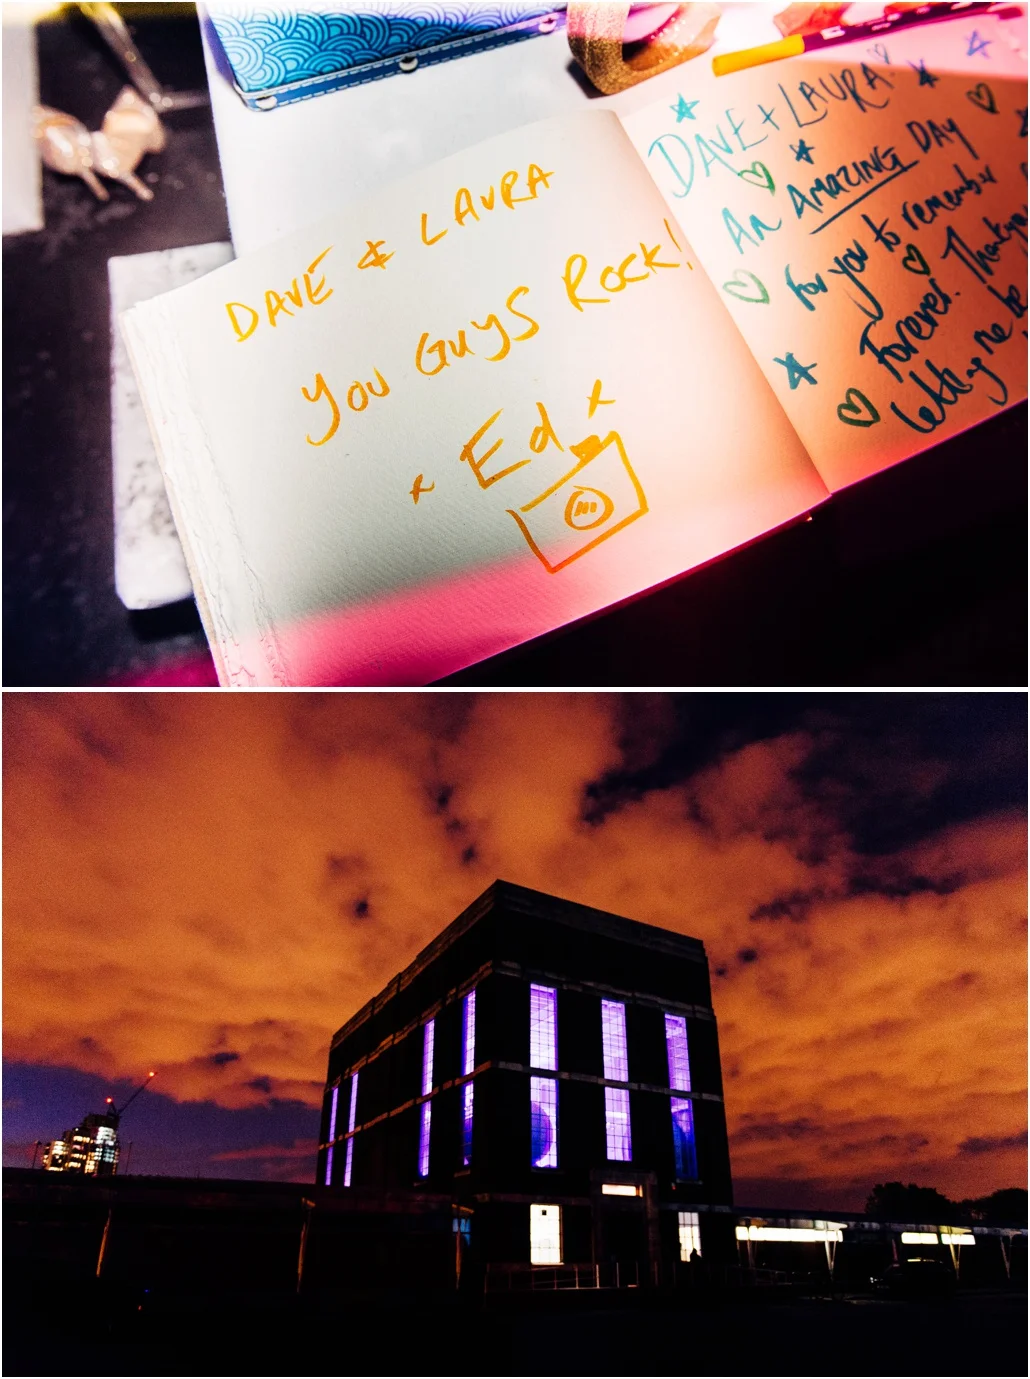 DAVE & LAURA
YOU GUYS ROCK!
x Ed x
DAVE + LAURA
An AMAZING DAY
for you to remember
Forever. Thankyou
letting me be